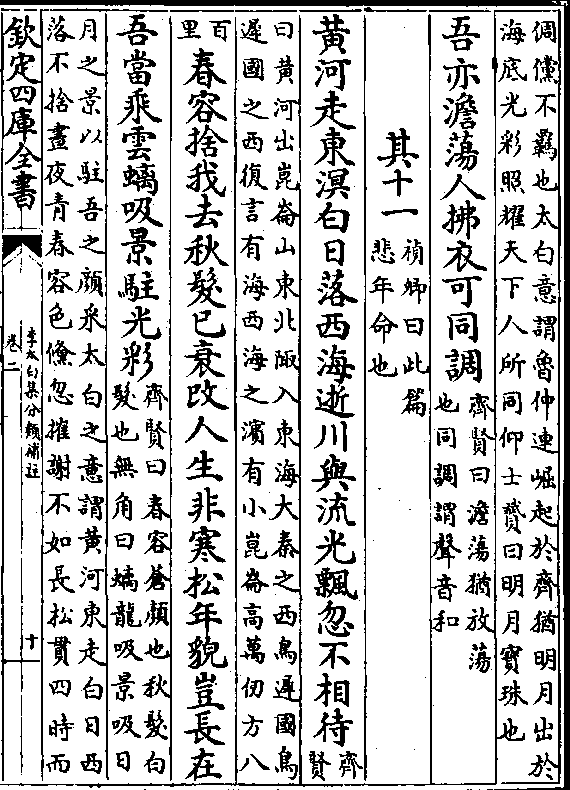 倜儻不羈也太白意謂魯仲連崛起於齊猶明月出於
海底光彩照耀天下人所同仰士贇曰明月寶珠也
吾亦澹蕩人拂衣可同調齊賢曰澹蕩猶放蕩
也同調謂聲音和
其十一禎卿曰此篇
悲年命也
黄河走東溟白日落西海逝川與流光飄忽不相待齊
賢
曰黄河出崑崙山東北陬入東海大秦之西烏遲國烏
遲國之西復言有海西海之濱有小崑崙高萬仞方八
百
里春容捨我去秋髮已衰改人生非寒松年貌豈長在
吾當乘雲螭吸景駐光彩齊賢曰春容蒼顏也秋髮白
髮也無角曰螭龍吸景吸日
月之景以駐吾之顏采太白之意謂黄河東走白日西
落不捨晝夜青春容色倏忽摧謝不如長松貫四時而
欽定四庫全書
李太白集分類補註
卷二
十